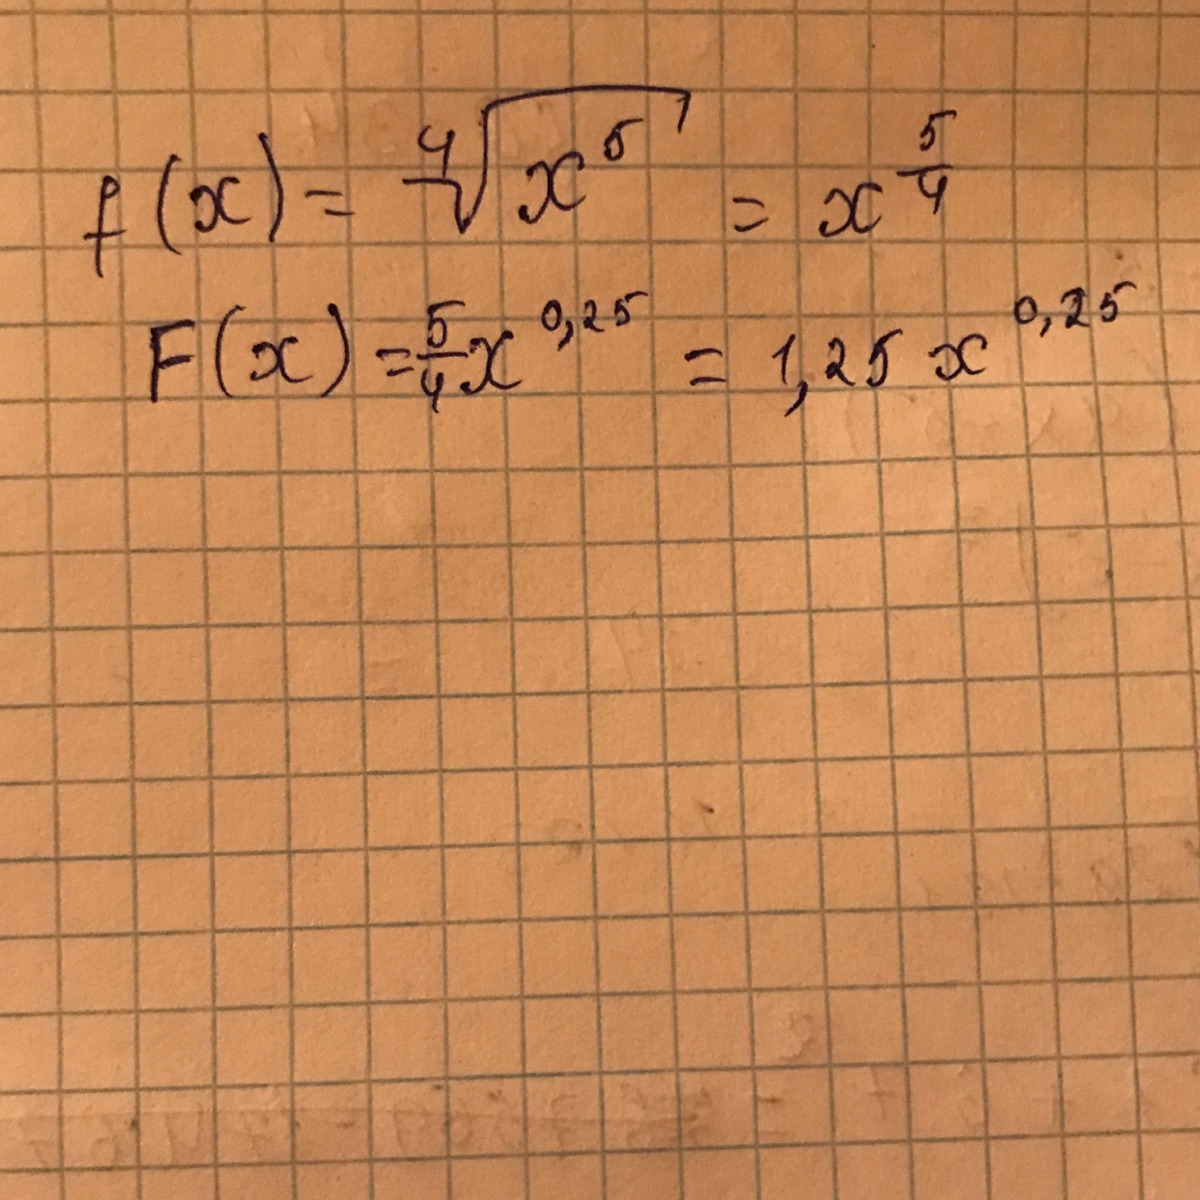 f(x) = ⁴√x⁵ = x^(5/4)
F(x) = 5/4 x^0,25 = 1,25 x^0,25